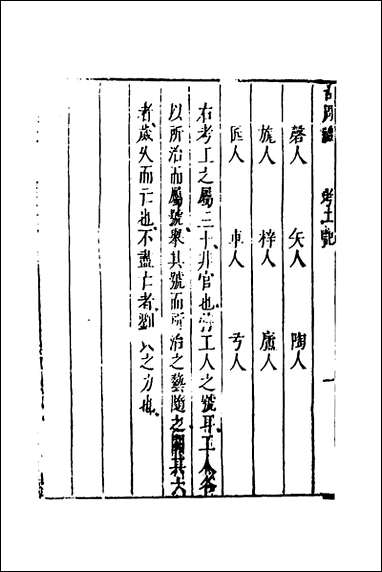 考工記
磬人 矢人 陶人
旊人 梓人 廬人
匠人 車人 弓人
右考工之屬三十非官也特工人之號耳工人各
以所治而屬號舉其號而所治之藝隨之闕其大
者歲久而亡也不盡亡者劉 之力也